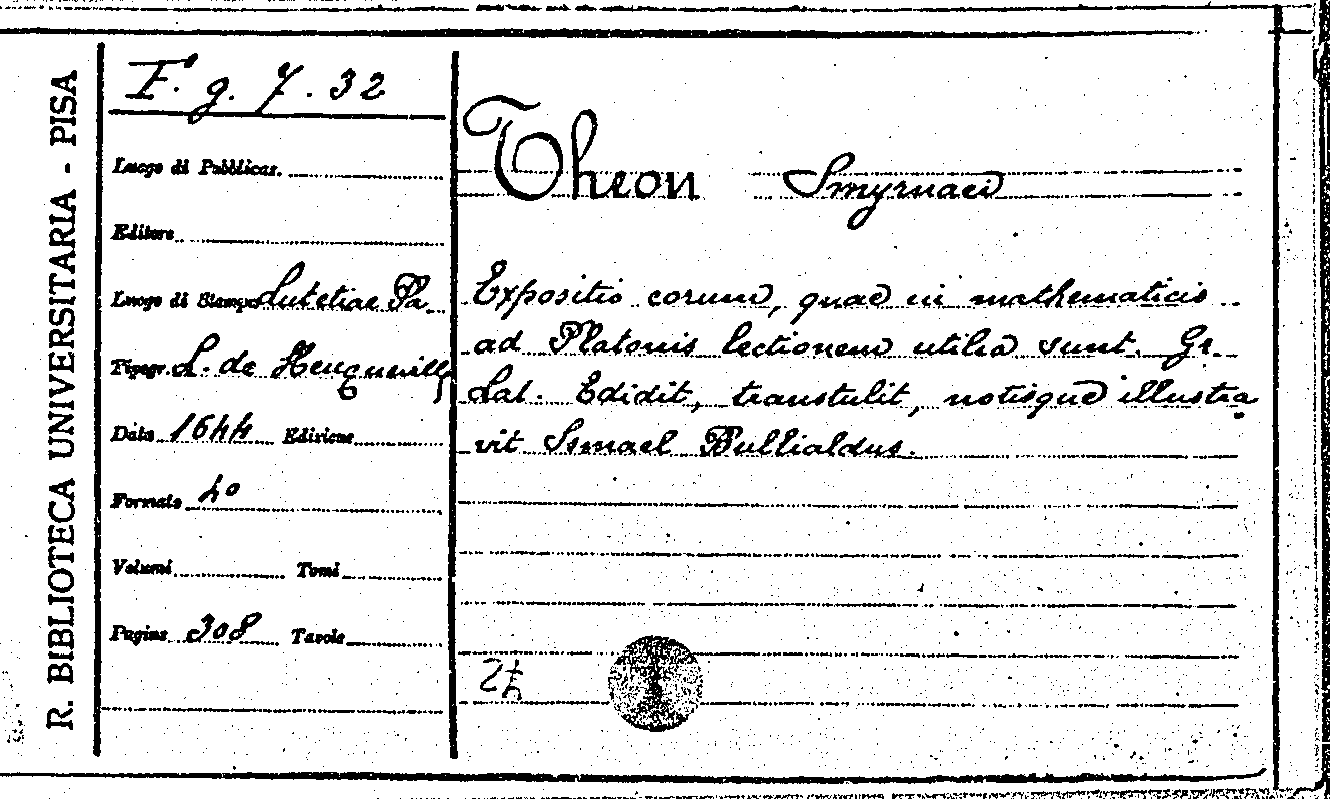 R. BIBLIOTECA UNIVERSITARIA - PISA
F. g. 7. 32
Luogo di Pubblicaz.
Editore
Luogo di Stampa Lutetiae Pa
Tipogr. L. de Heuqueville
Data 1644 Edizione
Formato 4°
Volumi Tomi
Pagine 308 Tavole
Theon Smyrnaei
Expositio eorum, quae in mathematicis
ad Platonis lectionem utilia sunt. Gr.
Lat. Edidit, transtulit, notisque illustra
vit Ismael Bullialdus.